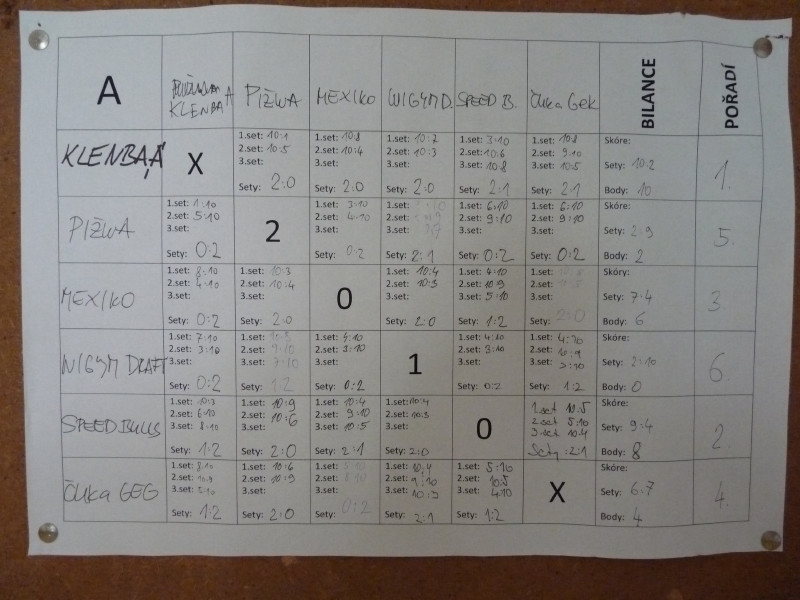 A
KLENBA A
PIŽWA
MEXIKO
WIGYM D.
SPEED B.
ČUKA GEK
BILANCE
POŘADÍ
KLENBA A
X
1.set: 10:1
2.set: 10:5
3.set:
Sety: 2:0
1.set: 10:8
2.set: 10:4
3.set:
Sety: 2:0
1.set: 10:7
2.set: 10:3
3.set:
Sety: 2:0
1.set: 3:10
2.set: 10:6
3.set: 10:8
Sety: 2:1
1.set: 10:8
2.set: 9:10
3.set: 10:5
Sety: 2:1
Skóre:
Sety: 10:2
Body: 10
1.
PIŽWA
1.set: 1:10
2.set: 5:10
3.set:
Sety: 0:2
2
1.set: 3:10
2.set: 4:10
3.set:
Sety: 0:2
1.set:
2.set:
3.set:
Sety: 2:1
1.set: 6:10
2.set: 9:10
3.set:
Sety: 0:2
1.set: 6:10
2.set: 9:10
3.set:
Sety: 0:2
Skóre:
Sety: 2:9
Body: 2
5.
MEXIKO
1.set: 8:10
2.set: 4:10
3.set:
Sety: 0:2
1.set: 10:3
2.set: 10:4
3.set:
Sety: 2:0
0
1.set: 10:4
2.set: 10:3
3.set:
Sety: 2:0
1.set: 4:10
2.set: 10:9
3.set: 5:10
Sety: 1:2
1.set:
2.set:
3.set:
Sety: 2:0
Skóry:
Sety: 7:4
Body: 6
3
WIGYM DRAFT
1.set: 7:10
2.set: 3:10
3.set:
Sety: 0:2
1.set:
2.set: 9:10
3.set: 7:10
Sety: 1:2
1.set: 4:10
2.set: 3:10
3.set:
Sety: 0:2
1
1.set: 4:10
2.set: 3:10
3.set:
Sety: 0:2
1.set: 4:10
2.set: 10:9
3.set: 3:10
Sety: 1:2
Skóre:
Sety: 2:10
Body: 0
6.
SPEED BULLS
1.set: 10:3
2.set: 6:10
3.set: 8:10
Sety: 1:2
1.set: 10:9
2.set: 10:6
3.set:
Sety: 2:0
1.set: 10:4
2.set: 9:10
3.set: 10:5
Sety: 2:1
1.set: 10:4
2.set: 10:3
3.set:
Sety: 2:0
0
1.set 10:5
2.set 5:10
3.set 10:4
Sety: 2:1
Skóre:
Sety: 9:4
Body: 8
2.
ČUKA GEG
1.set: 8:10
2.set: 10:9
3.set: 5:10
Sety: 1:2
1.set: 10:6
2.set: 10:9
3.set:
Sety: 2:0
1.set:
2.set:
3.set:
Sety: 0:2
1.set: 10:4
2.set: 9:10
3.set: 10:3
Sety: 2:1
1.set: 5:10
2.set: 10:5
3.set: 4:10
Sety: 1:2
X
Skóre:
Sety: 6:7
Body: 4
4.